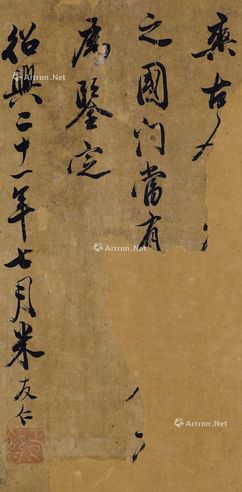 之國門當有
為鑒定
紹興二十一年七月米友仁
Artron.Net
Artron.Net
Artron.Net